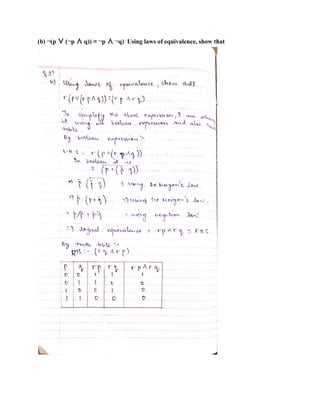 (b) ¬(p ∨ (¬p ∧ q)) ≡ ¬p ∧ ¬q) Using laws of equivalence, show that
Q.3)
b) Using laws of equivalence, show that
r(p∨(rp∧q)) ≡ (rp∧rq)
To simplify the above expression, I am
it using boolean expression and also
table
By boolean expression :-
In boolean it is
= (p+(p̅ q))
⇒ p̅ (p̅ q) : using De Morgan's law.
⇒ p̅ . (p+q̅) ⇒) using De Morgan's law.
= using negation law
⇒) logical equivalence = rp∧rq = R.H.S
By truth table :-
RHS :- (rq∧rp)
p q rp rq rp∧rq
0 0 1 1 1
0 1 1 0 0
1 0 0 1 0
1 1 0 0 0